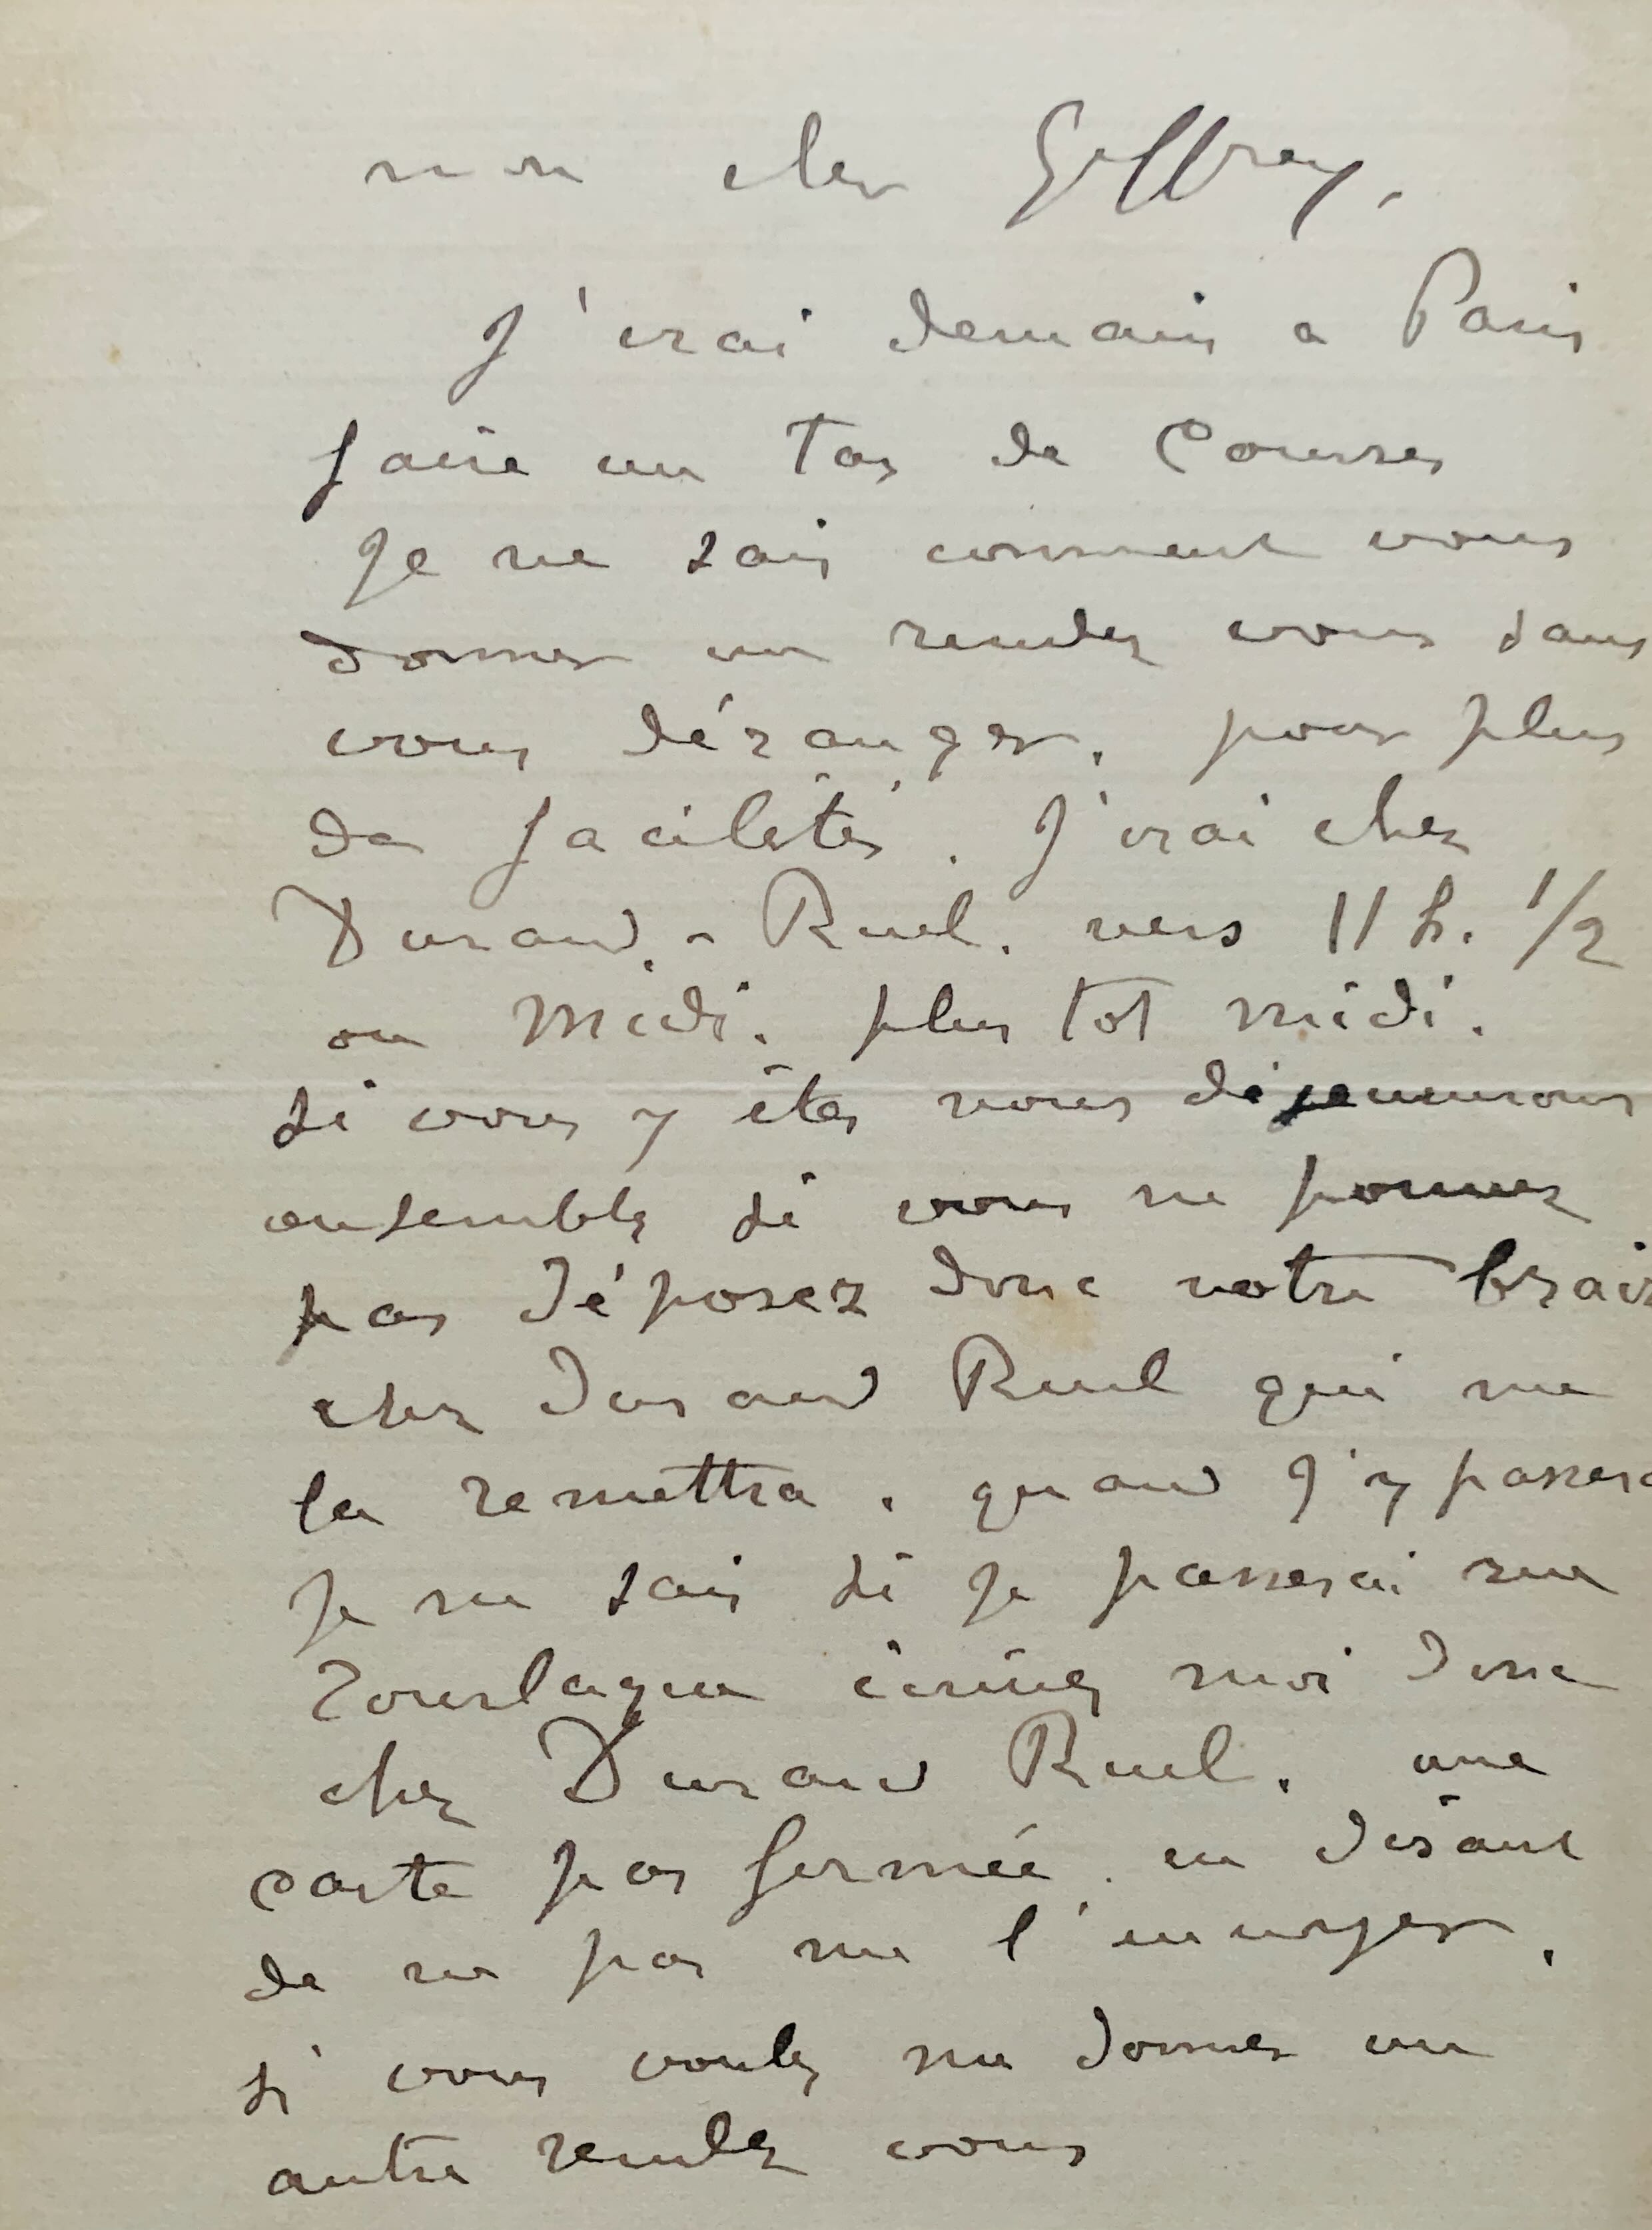 mon cher Geffroy,
J'irai demain a Paris
faire un tas de Courses
Je ne sais comment vous
donner un rendez vous sans
vous déranger. pour plus
de facilités. J'irai chez
Durand-Ruel. vers 11 h. 1/2
ou Midi. plus tot midi.
si vous y êtes nous déjeunerons
ensemble si vous ne pouvez
pas déposez donc votre
chez Durand Ruel qui me
la remettra. quand j'y passerai
Je ne sais si je passerai rue
Tourlaque écrivez moi donc
chez Durand Ruel. une
carte pas fermée. en disant
de ne pas me l'envoyer.
si vous voulez me donner un
autre rendez vous